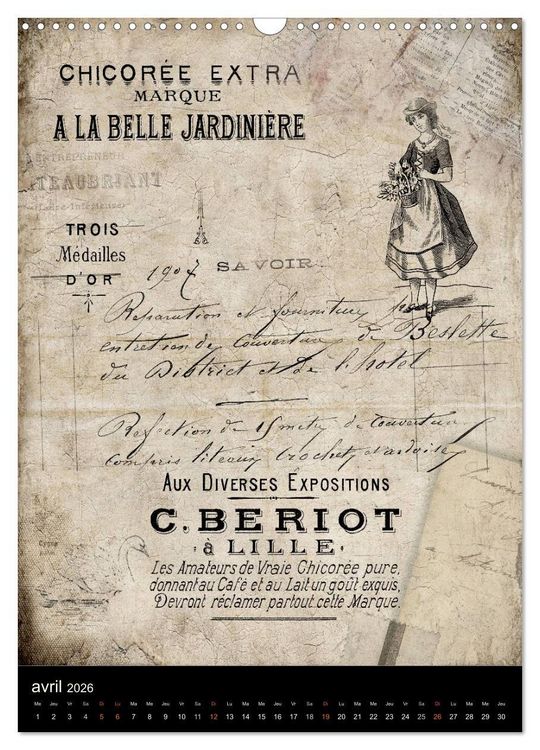 CHICORÉE EXTRA
MARQUE
A LA BELLE JARDINIÈRE
ENTREPRENEUR
TEAUBRIANT
TROIS
Médailles
D'OR
1907
SAVOIR
Réparation et fourniture pour
entretien de couverture de Beslette
du District et de l'hotel
Refection de 15 metres de couverture
compris liteaux crochets et ardoises
AUX DIVERSES EXPOSITIONS
C. BERIOT
à LILLE
Les Amateurs de Vraie Chicorée pure,
donnant au Café et au Lait un goût exquis,
Devront réclamer partout cette Marque.
avril 2026
Me Je Ve Sa Di Lu Ma Me Jeu Ve Sa Di Lu Ma Me Jeu Ve Sa Di Lu Ma Me Jeu Ve Sa Di Lu Ma Me Jeu
1 2 3 4 5 6 7 8 9 10 11 12 13 14 15 16 17 18 19 20 21 22 23 24 25 26 27 28 29 30